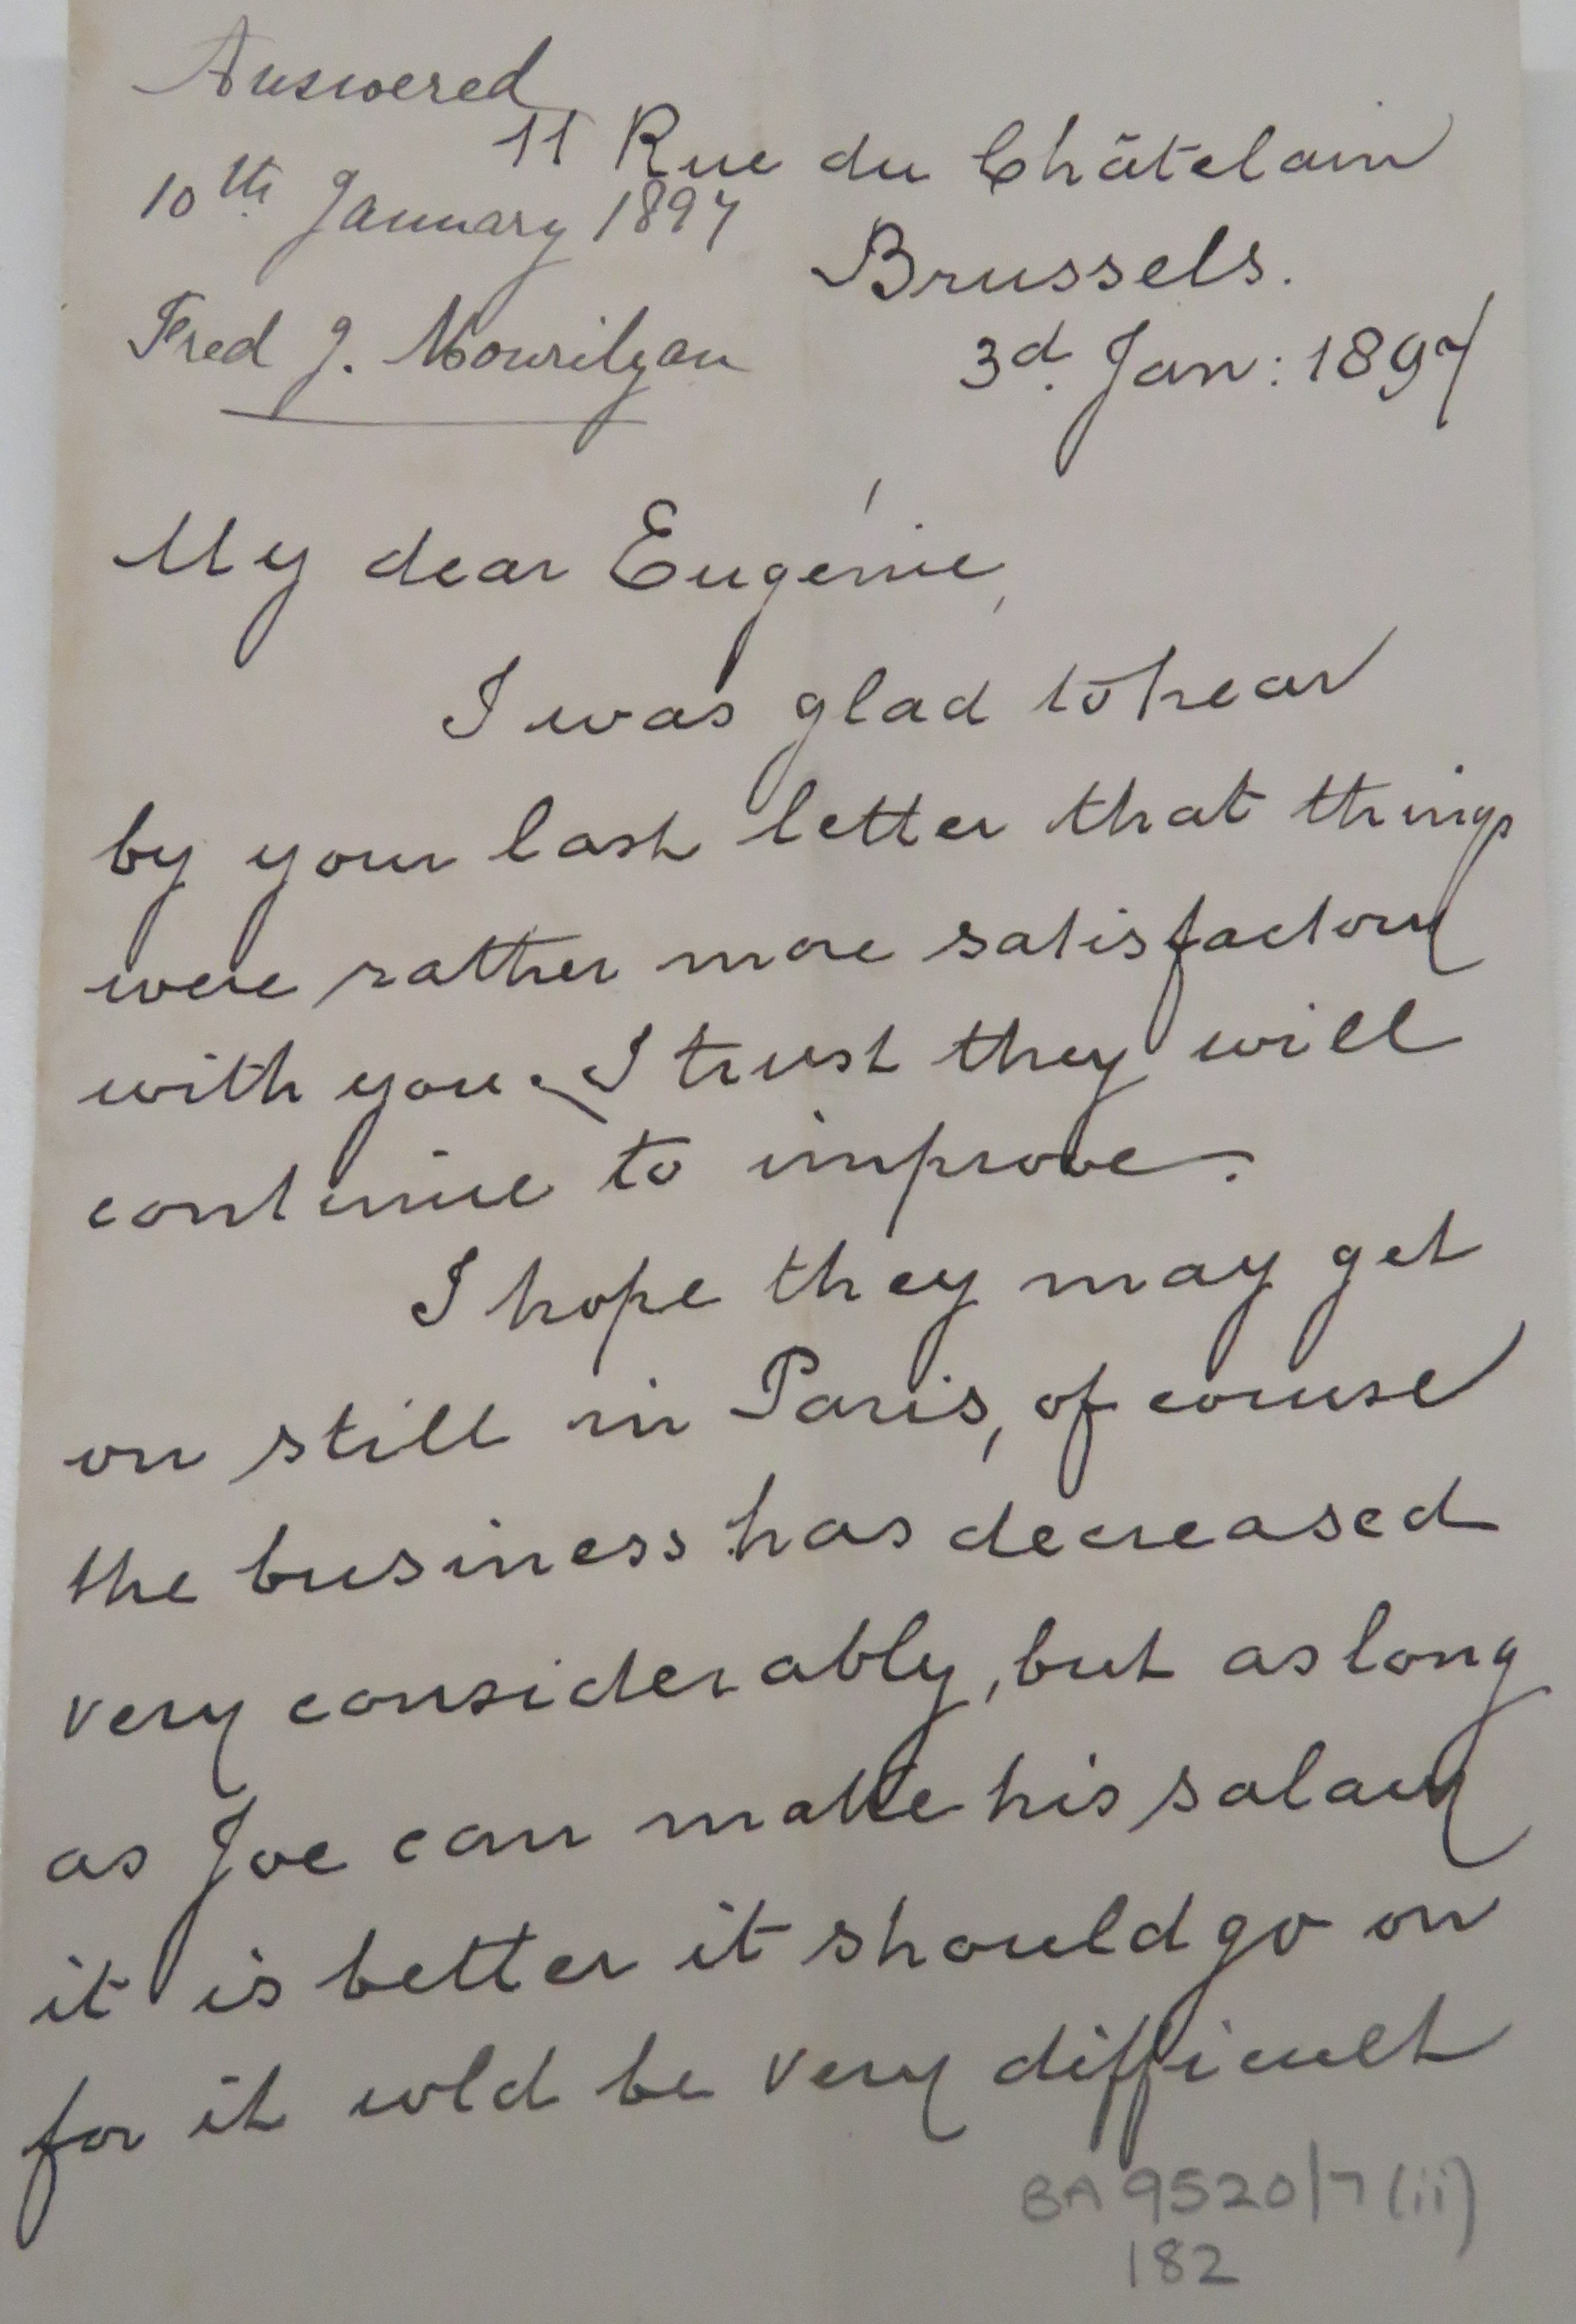 Answered
10th January 1897
Fred J. Mourilyan
11 Rue du Châtelain
Brussels.
3d. Jan: 1897
My dear Eugénie,
I was glad to hear
by your last letter that things
were rather more satisfactory
with you. I trust they will
continue to improve.
I hope they may get
on still in Paris, of course
the business has decreased
very considerably, but as long
as Joe can make his salary
it is better it should go on
for it wld be very difficult
BA 9520/7 (ii)
182